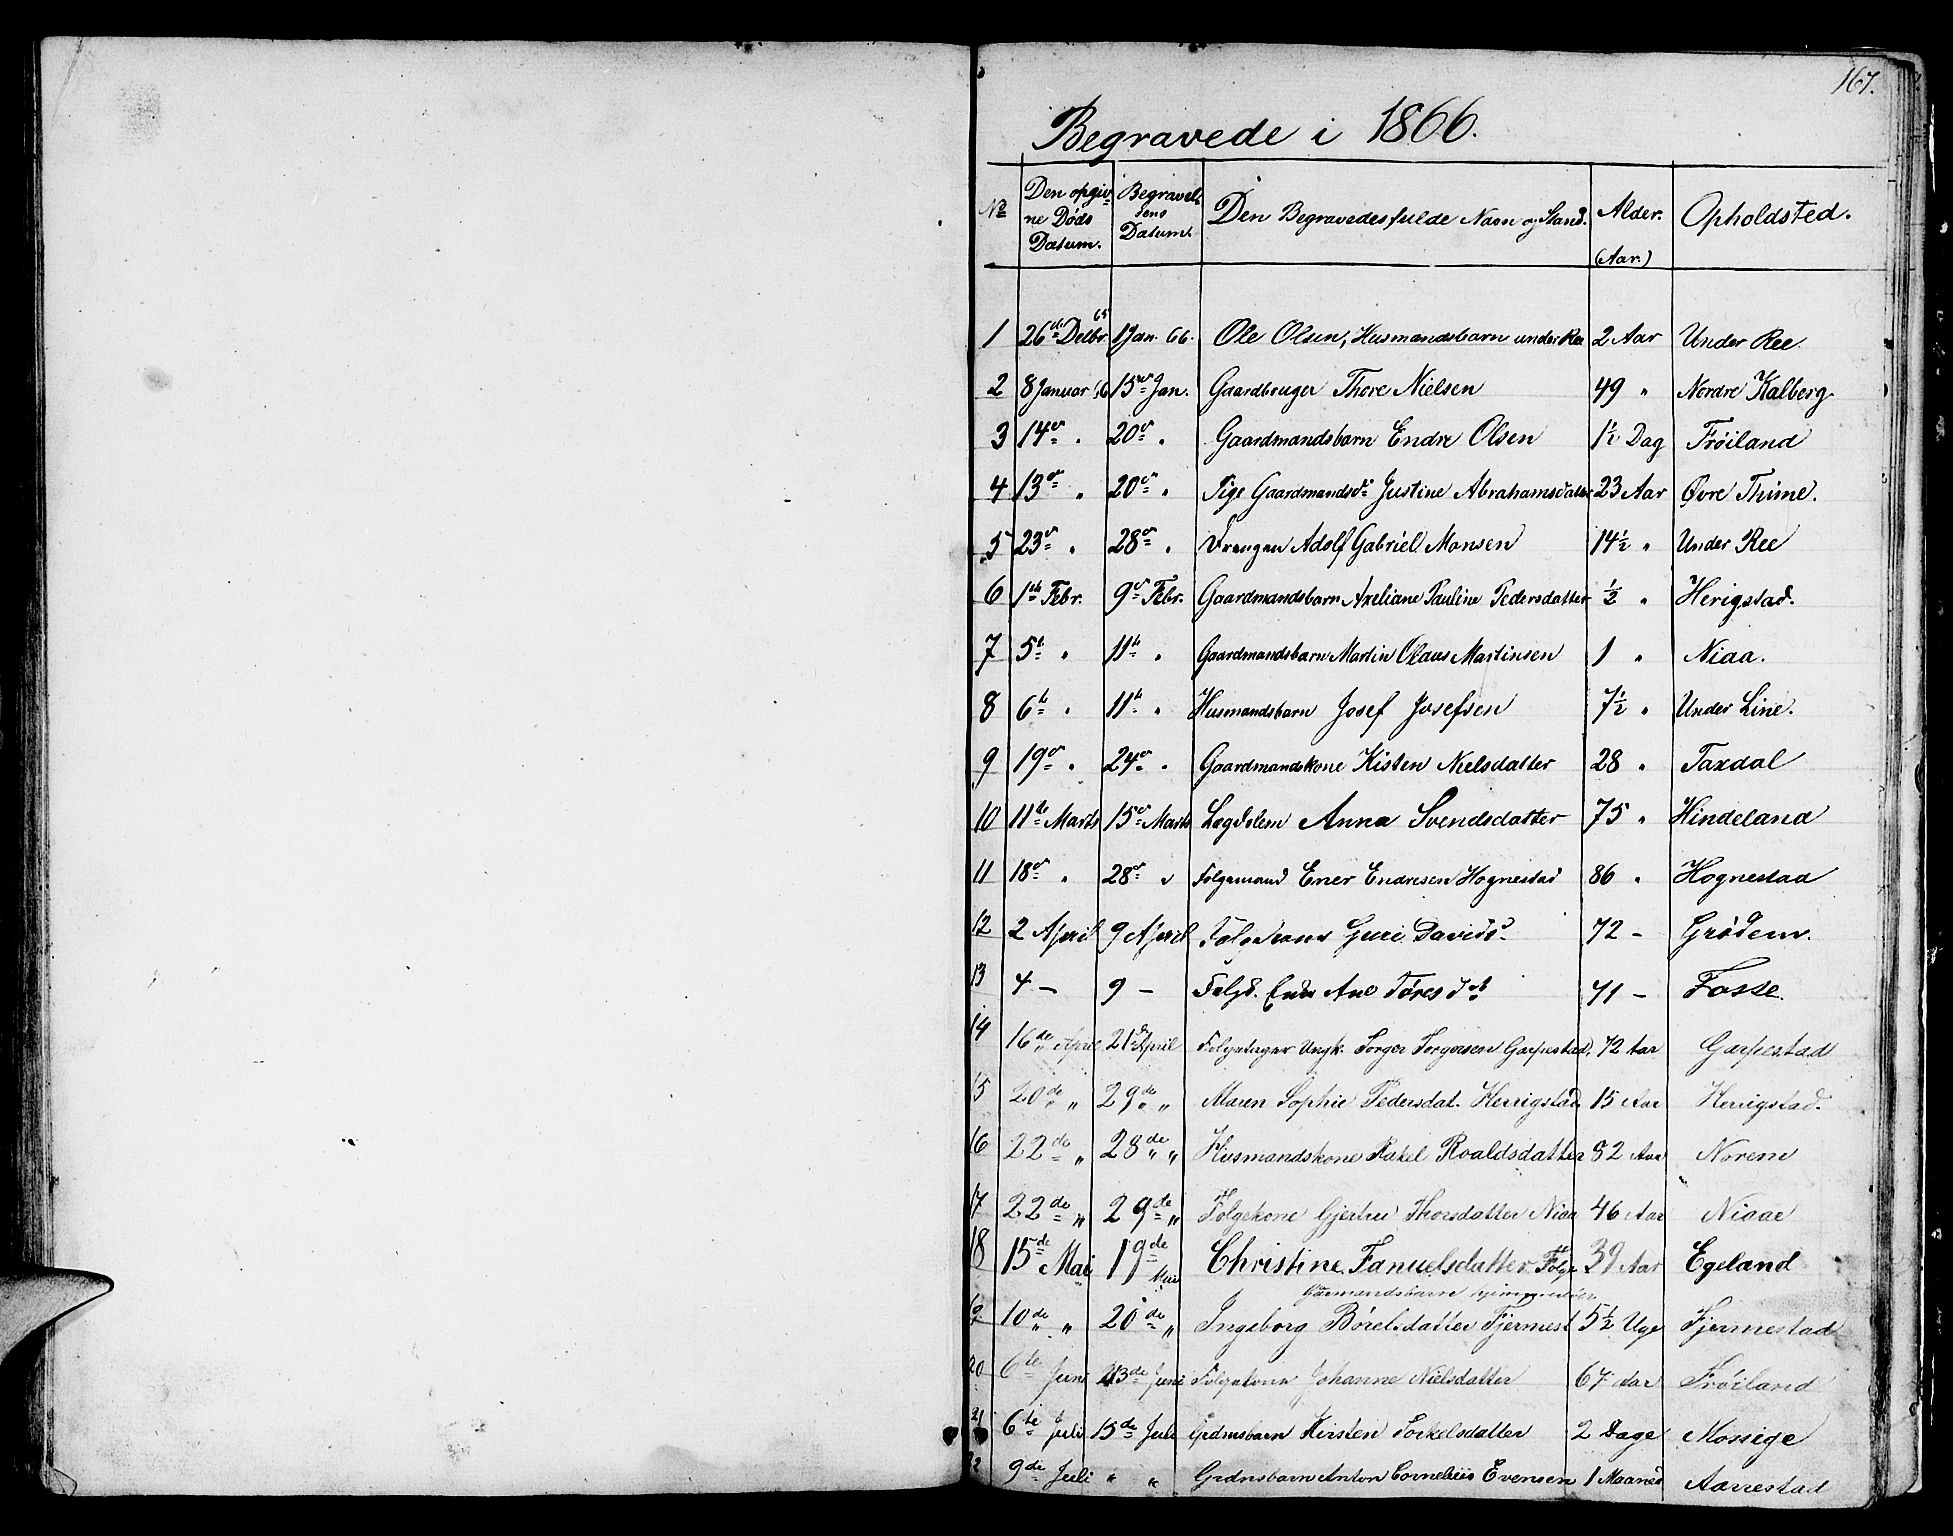 167.
Begravede i 1866.
No Den opgiv- ne Døds Datum. Begravel- sens Datum. Den Begravedes fulde Navn og Stand. Alder. (Aar.) Opholdsted.
1 26de Decbr. 65 1 Jan. 66. Ole Olsen, Husmandsbarn under Ree 2 Aar Under Ree.
2 8 Januar 66 15de Jan. Gaardbruger Thore Nielsen 49 " Nordre Kalberg.
3 14de " 20de " Gaardmandsbarn Endre Olsen 1½ Dag Frøiland
4 13de " 20de " Pige Gaardmandsd. Justine Abrahamsdatter 23 Aar Øvre Thime.
5 23de " 28de " Drengen Adolf Gabriel Monsen 14½ " Under Ree
6 1ste Febr. 9de Febr. Gaardmandsbarn Axeliane Pauline Pedersdatter ½ " Herigstad.
7 5te " 11te " Gaardmandsbarn Martin Olaus Martinsen 1 " Niaa.
8 6te " 11te " Husmandsbarn Josef Josefsen 7½ " Under Line.
9 19de " 24de " Gaardmandskone Kisten Nielsdatter 28 " Taxdal
10 11te Marts 15de Marts Lægdslem Anna Svendsdatter 75 " Hindeland
11 18de " 28de " Folgemand Ener Endresen Hognestad 86 " Hognestad
12 2 April 9 April Guri Davidsd. 72 - Grødem.
13 4 - 9 - Folgd. Enke Ane Tøresdt 71 - Fosse.
14 16de April 21de April Folgetager Ungk. Torger Torgersen Garpestad. 72 Aar Garpestad
15 20de " 29de " Maren Sophie Pedersdat. Herrigstad. 15 Aar Herrigstad.
16 22de " 28de " Husmandskone Rakel Roaldsdatter 82 Aar Norem
17 22de " 29de " Folgekone Gjertru Thorsdatter Niaa 46 Aar Niaae
18 15de Mai 19de Mai Christine Fanuelsdatter Folge 39 Aar Egeland
Gaarmandsbarn
19 10de " 20de " Ingeborg Børelsdatter Fjermest 5½ Uge Fjermestad
20 6te Juni 13de Juni Folgekone Johanne Nielsdatter 67 Aar Frøiland
21 6te Juli 15de Juli Grdmsbarn Kirsten Torkelsdatter 2 Dage Mossige
22 9de Juli " " Grdnsbarn Anton Cornelius Evensen 1 Maaned Aanestad